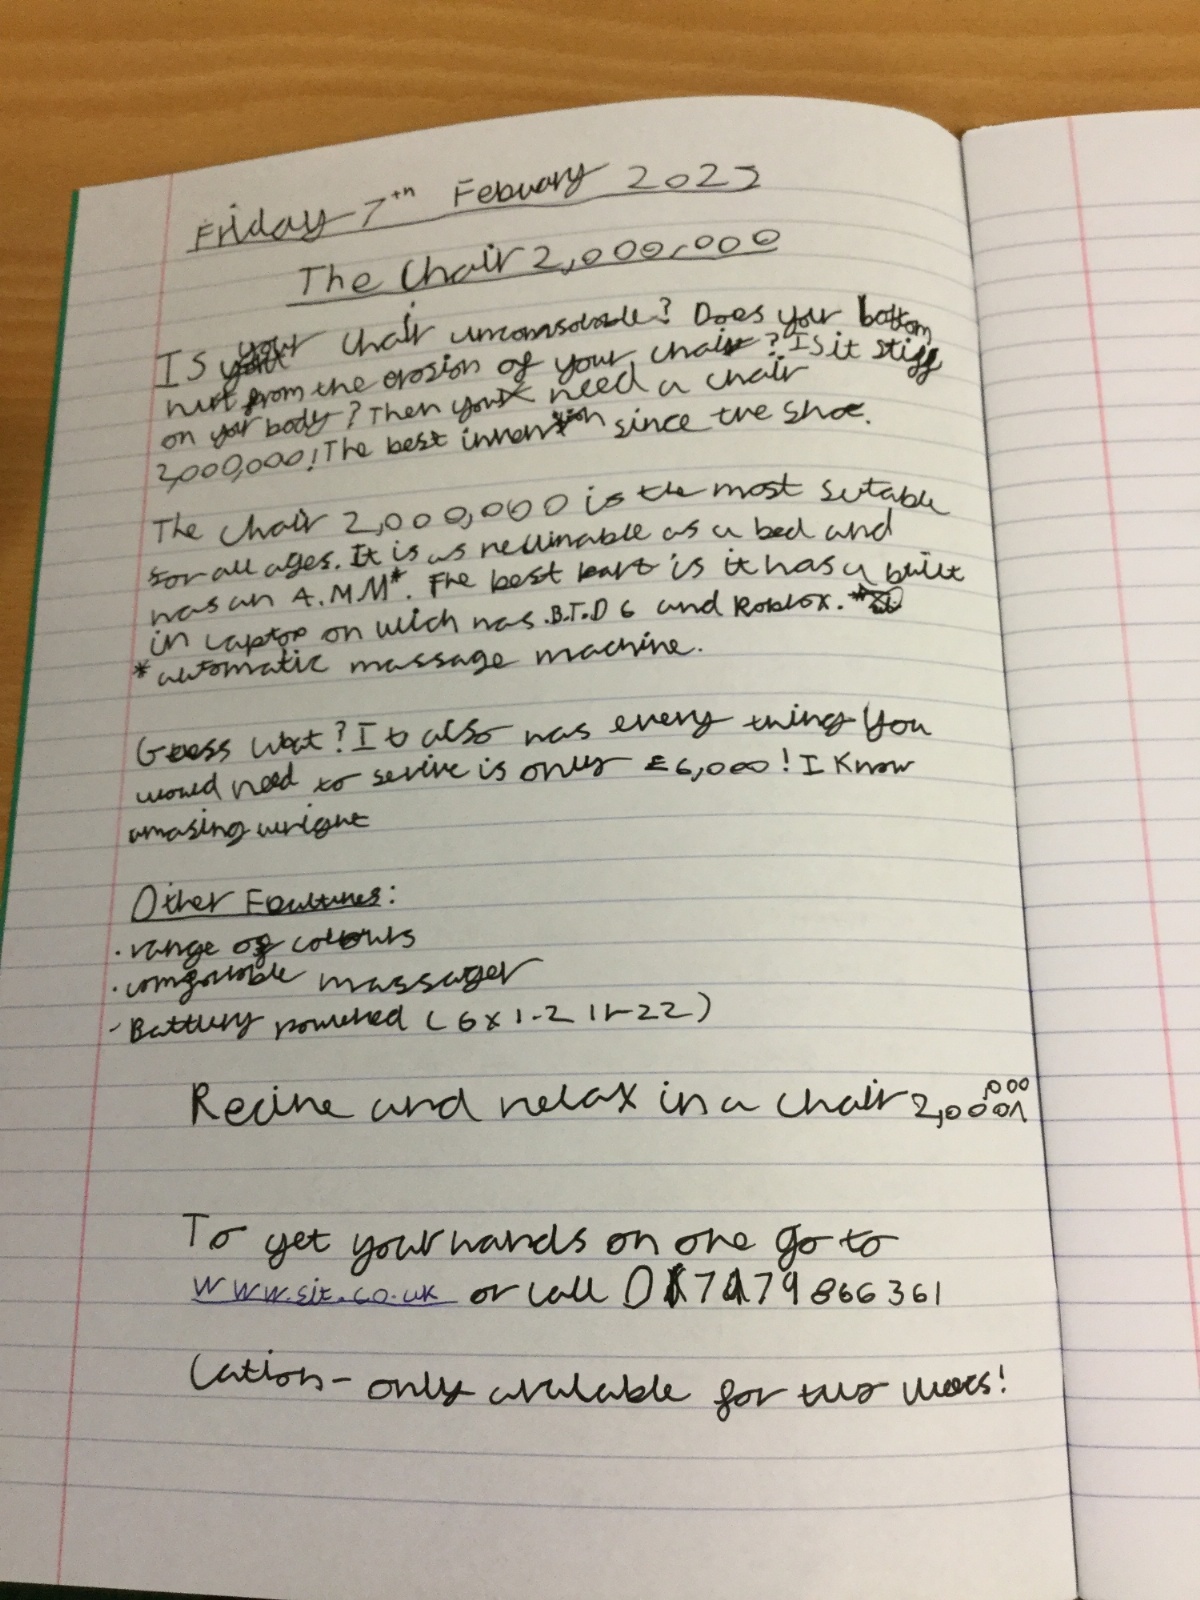 Friday 7th Febuary 2025
The Chair 2,000,000
Is your chair uncomsorable? Does your bottom
hurt from the erosion of your chair? Is it stiff
on your body? Then you need a chair
2,000,000! The best invention since the shoe.
The chair 2,000,000 is the most sutable
for all ages. It is as reclinable as a bed and
has an A.M.M*. The best part is it has a built
in laptop on wich has .B.T.D 6 and Roblox.
*automatic massage machine.
Guess what? It also has every thing you
would need to servive is only £6,000! I know
amasing wright
Other Feutures:
· range of colours
· comfortable massager
- Battery powered (6x1-2 LR22)
Recine and relax in a chair 2,000,000
To get your hands on one go to
www.sit.co.uk or call 07479866361
Cation - only avalable for two weecs!